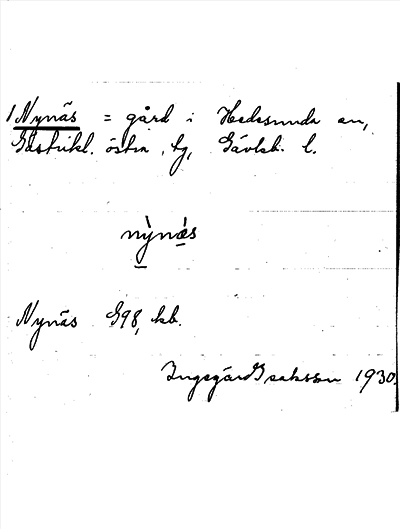 1 Nynäs = gård i Hedesunda sn,
Gästrikl. östra tg, Gävleb. l.
nỳnæ̀s
Nynäs G98, kb.
Ingegärd Isaksson 1930.